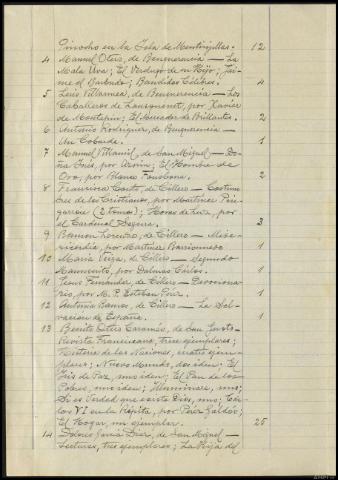 Pinocho en la Isla de Mentirijillas. 12
4 Manuel Otero, de Benquerencia — La
Mala Uva; El Verdugo de su Hijo; Jai-
me el Barbudo; Bandidos Célebres. 4
5 Luis Villarmea, de Benquerencia — Los
Caballeros de Lansquenet, por Xavier
de Montepin; El Buscador de Brillantes. 2
6 Antonio Rodríguez, de Benquerencia —
Un Cobarde. 1
7 Manuel Villamil, de San Miguel — Do-
ña Inés, por Azorín; El Hombre de
Oro, por Blanco Fombona. 2
8 Francisca Couto, de Cillero — Costum-
bres de los Cristianos, por Martínez
(2 tomos); Horas de Luz, por
el Cardenal Segura. 3
9 Ramón Lorenzo, de Cillero — Mise-
ricordia, por Martínez Barrionuevo 1
10 María Veiga, de Cillero — Segundo
Manuscrito, por Dalmau Carles. 1
11 Jesús Fernández, de Cillero — Devociona-
rio, por M. P. Esteban Pérez. 1
12 Antonio Ramos, de Cillero — La Sal-
vación de España. 1
13 Benito Otero Caramés, de San Justo —
Revista Franciscana, trece ejemplares;
Tesitorio de las Naciones, cuatro ejem-
plares; Nuevo Mundo, dos idem; El
Iris de Paz, uno idem; El Pan de los
Pobres, uno idem; Iluminare, uno;
Si es Verdad que existe Dios, uno; Car-
los VI en la Rápita, por Pérez Galdós;
El Hogar, un ejemplar. 25
14 Dolores García Díaz, de San Miguel —
Lecturas, tres ejemplares; La Hija del